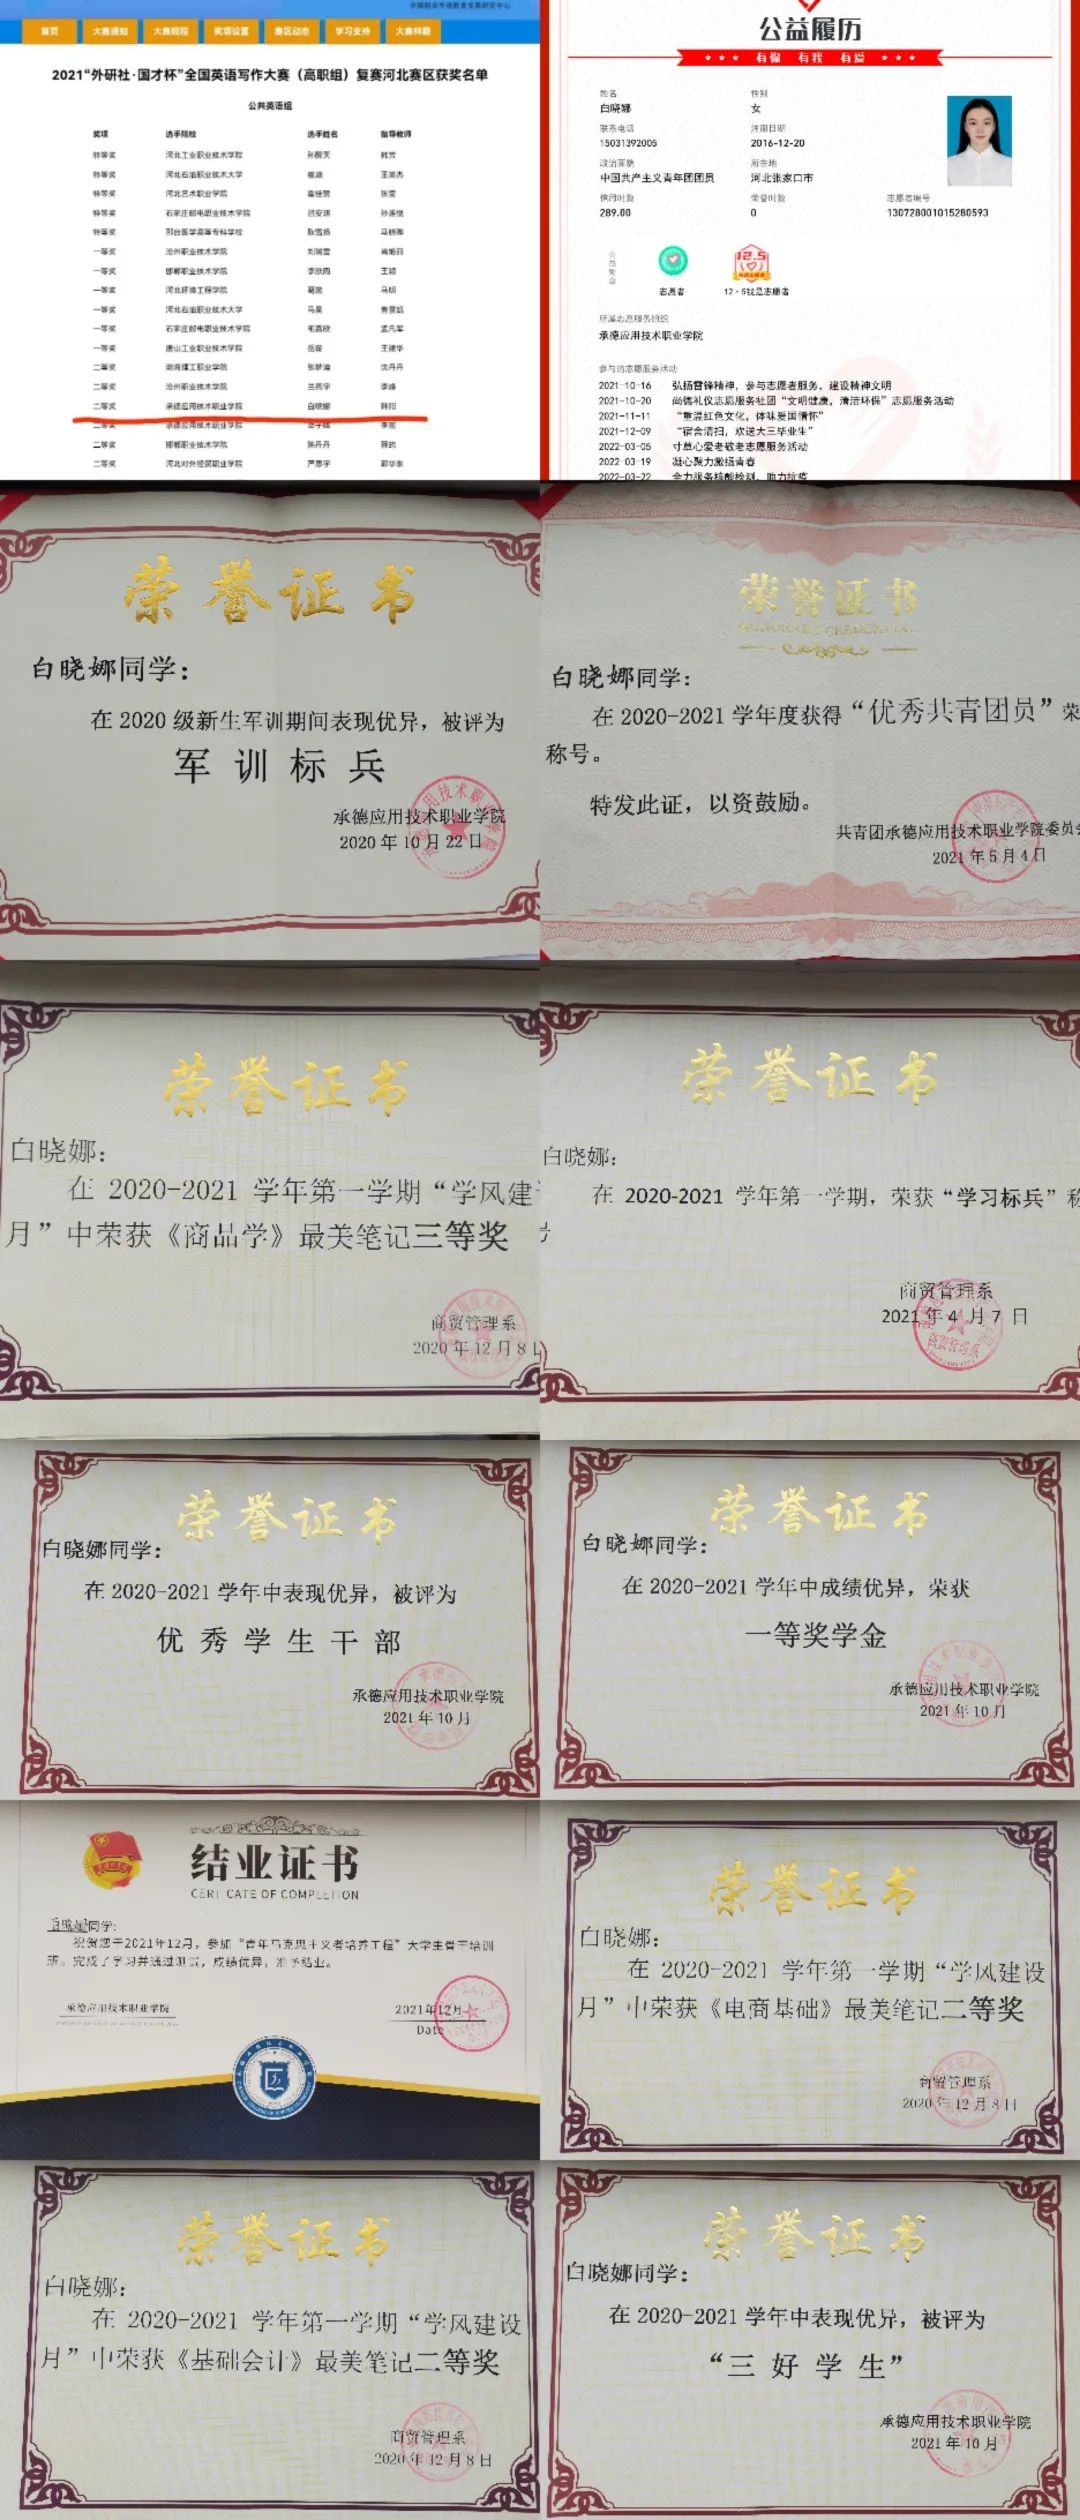 中国职业外语教育发展研究中心
首页 大赛通知 大赛规程 奖项设置 赛区动态 学习支持 大赛样题
2021“外研社·国才杯”全国英语写作大赛（高职组）复赛河北赛区获奖名单
公共英语组
奖项 选手院校 选手姓名 指导教师
特等奖 河北工业职业技术学院 韩芳
特等奖 河北石油职业技术大学 王英杰
特等奖 河北艺术职业学院 张雯
特等奖 石家庄邮电职业技术学院 吕安琪
特等奖 邢台医学高等专科学校 耿雪扬
一等奖 沧州职业技术学院 刘瑞雪
一等奖 邯郸职业技术学院 李欣雨 王颖
一等奖 河北环境工程学院 葛茵 马明
一等奖 河北石油职业技术大学 马昊 曹景凯
一等奖 石家庄邮电职业技术学院 毛嘉欣 孟凡军
一等奖 唐山工业职业技术学院 王建华
二等奖 渤海理工职业学院 张梦迪 沈丹丹
二等奖 沧州职业技术学院 兰燕宇 李峰
二等奖 承德应用技术职业学院 白晓娜 韩阳
二等奖 承德应用技术职业学院
二等奖 邯郸职业技术学院 陈丹丹
二等奖 河北对外经贸职业学院 严思宇 郭华东
公益履历
有你 有我 有爱
姓名 性别
白晓娜 女
联系电话 注册日期
15031392005 2016-12-20
政治面貌 所在地
中国共产主义青年团团员 河北张家口市
信用时数 荣誉时数 志愿者编号
289.00 0 130728001015280593
公益勋章
12.5
志愿者 12·5我是志愿者
所属志愿服务组织
承德应用技术职业学院
参与的志愿服务活动
2021-10-16 弘扬雷锋精神，参与志愿者服务，建设精神文明
2021-10-20 尚德礼仪志愿服务社团“文明健康，清洁环保”志愿服务活动
2021-11-11 “重温红色文化，体味爱国情怀”
2021-12-09 “宿舍清扫，欢送大三毕业生”
2022-03-05 寸草心爱老敬老志愿服务活动
2022-03-19 凝心聚力激扬青春
2022-03-22 全力服务核酸检测，助力抗疫
荣誉证书
白晓娜同学：
在 2020 级新生军训期间表现优异，被评为
军训标兵
承德应用技术职业学院
2020 年 10 月 22 日
荣誉证书
HONORARY CREDENTIAL
白晓娜同学：
在 2020-2021 学年度获得“优秀共青团员”荣
称号。
特发此证，以资鼓励。
共青团承德应用技术职业学院委员会
2021 年 5 月 4 日
荣誉证书
白晓娜：
在 2020-2021 学年第一学期“学风建
月”中荣获《商品学》最美笔记三等奖
商贸管理系
2020 年 12 月 8 日
荣誉证书
白晓娜：
在 2020-2021 学年第一学期，荣获“学习标兵”称
号
商贸管理系
2021 年 4 月 7 日
荣誉证书
白晓娜同学：
在 2020-2021 学年中表现优异，被评为
优秀学生干部
承德应用技术职业学院
2021 年 10 月
荣誉证书
白晓娜同学：
在 2020-2021 学年中成绩优异，荣获
一等奖学金
承德应用技术职业学院
2021 年 10 月
结业证书
CERTICATE OF COMPLETION
白晓娜同学：
祝贺您于2021年12月，参加“青年马克思主义者培养工程”大学生骨干培训
班。完成了学习并通过测试，成绩优异，准予结业。
承德应用技术职业学院
2021年12月
Date
荣誉证书
白晓娜：
在 2020-2021 学年第一学期“学风建设
月”中荣获《电商基础》最美笔记二等奖
商贸管理系
2020 年 12 月 8 日
荣誉证书
白晓娜：
在 2020-2021 学年第一学期“学风建设
月”中荣获《基础会计》最美笔记二等奖
商贸管理系
2020 年 12 月 8 日
荣誉证书
白晓娜同学：
在 2020-2021 学年中表现优异，被评为
“三好学生”
承德应用技术职业学院
2021 年 10 月